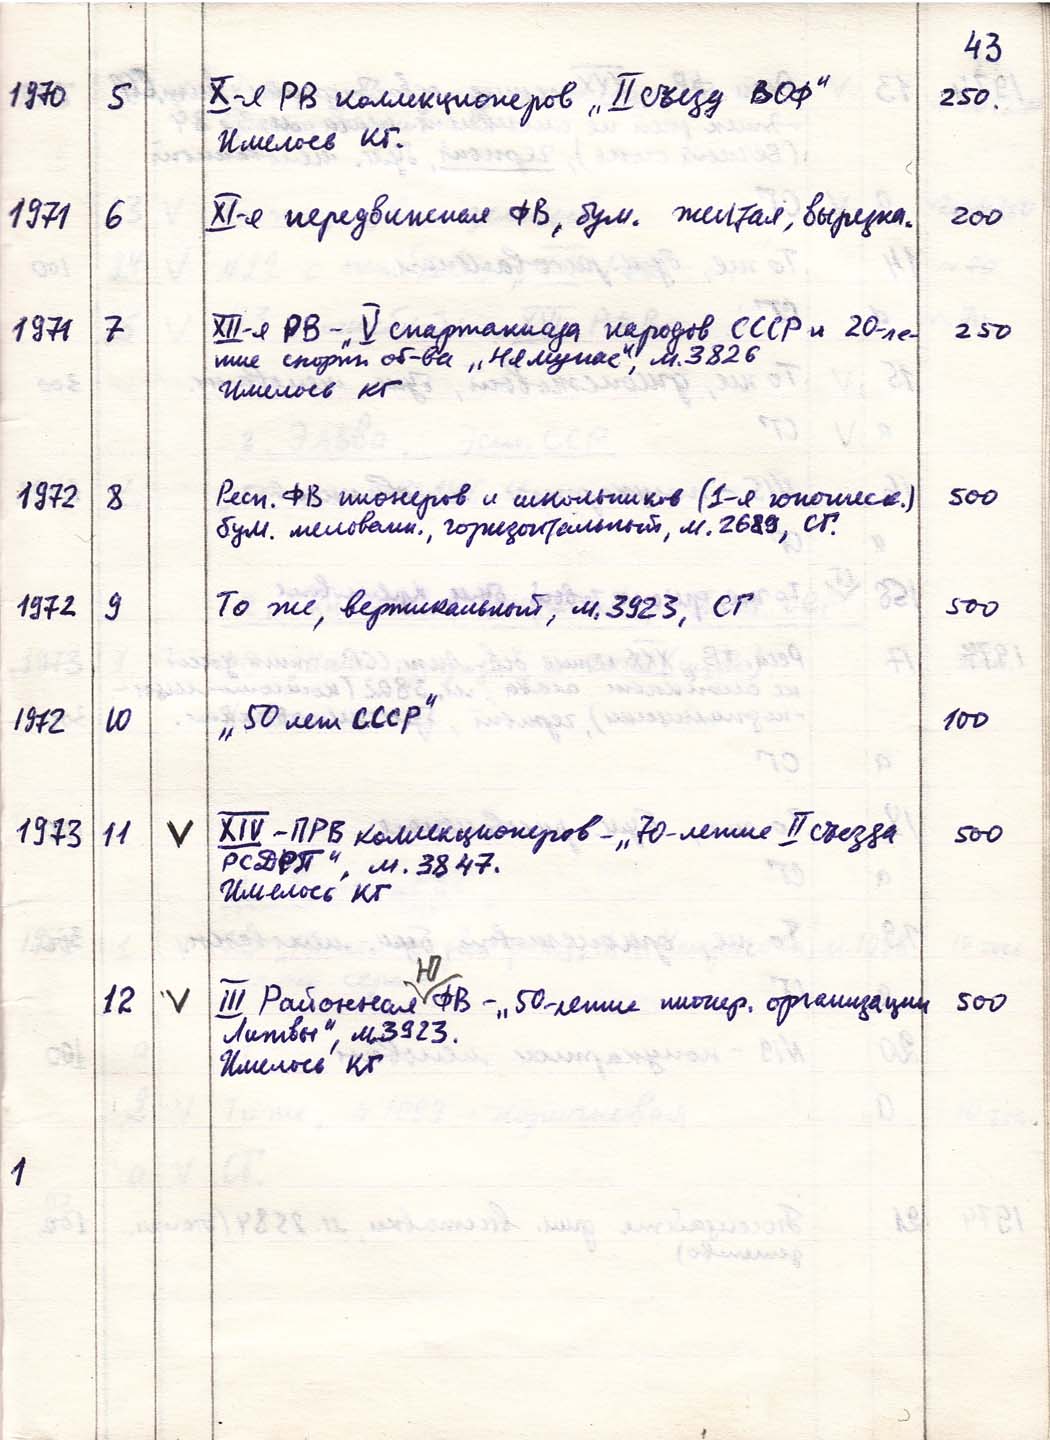 43
1970 5 X-я РВ коллекционеров „II съезд ВОФ" 250.
Имелось КГ.
1971 6 XI-я передвижная ФВ, бум. желтая, вырезка. 200
1971 7 XII-я РВ - „V спартакиада народов СССР и 20-ле- 250
тие спорт. об-ва „Нямунас", м. 3826
Имелось КГ
1972 8 Респ. ФВ пионеров и школьников (1-я юношеск.) 500
бум. мелованн., горизонтальный, м. 2689, СГ.
1972 9 То же, вертикальный, м. 3923, СГ 500
1972 10 „50 лет СССР" 100
1973 11 V XIV - ПРВ коллекционеров - „70-летие II съезда 500
РСДРП", м. 3847.
Имелось КГ
Ю
12 V III Районная ФВ - „50-летие пионер. организации 500
Литвы", м. 3923.
Имелось КГ
1